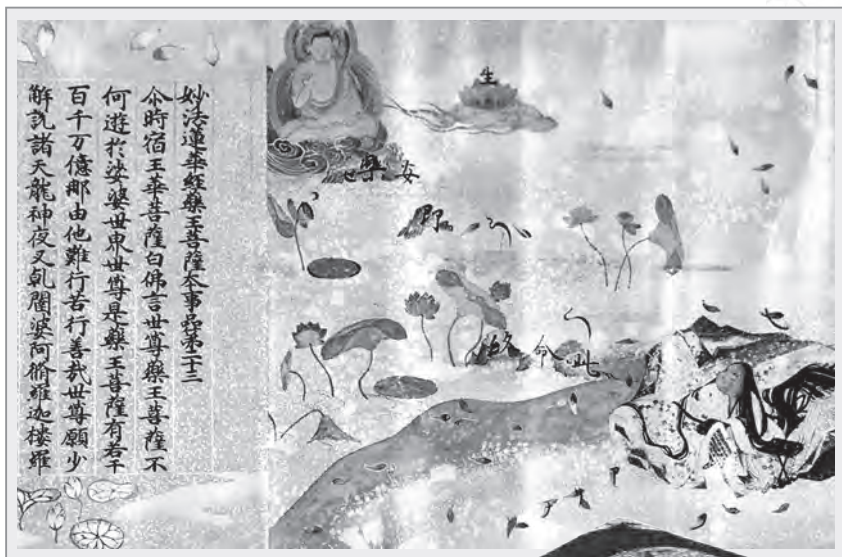 此命終
即
安樂世
生
妙法蓮華経藥王菩薩本事品第二十三
尒時宿王華菩薩白佛言世尊藥王菩薩云
何遊於娑婆世界世尊是藥王菩薩有若干
百千万億那由他難行苦行善哉世尊願少
解説諸天龍神夜叉乹闥婆阿脩羅迦樓羅